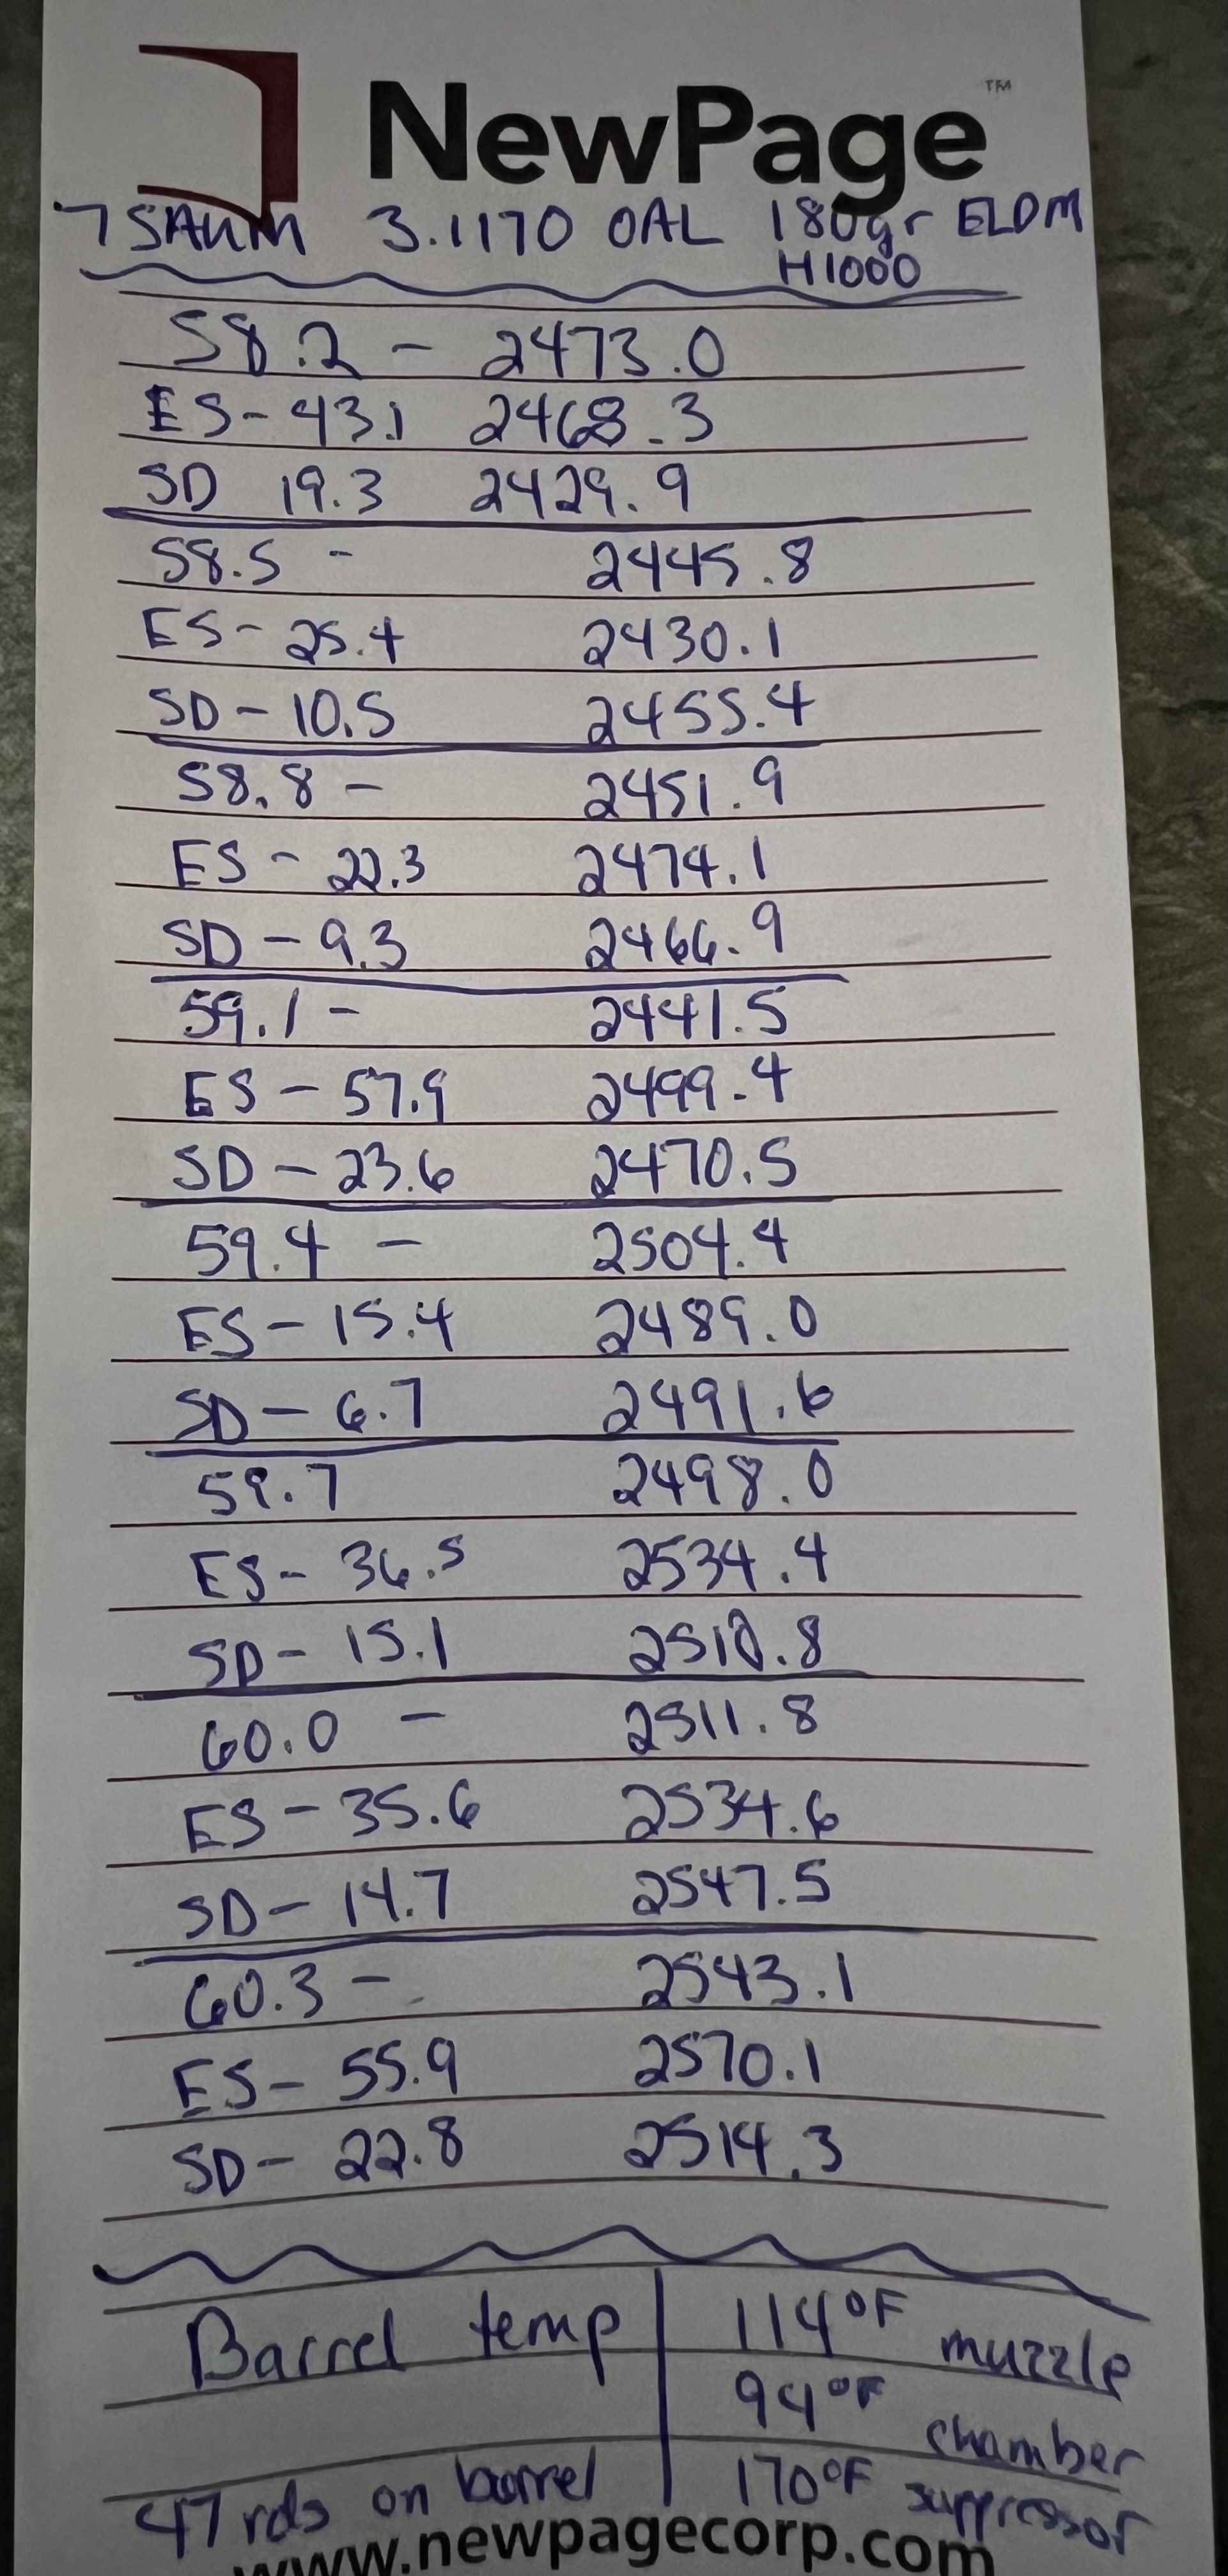 NewPage™
7 SAUM 3.1170 OAL 180gr ELDM
H1000
58.2 - 2473.0
ES - 43.1 2468.3
SD 19.3 2429.9
58.5 - 2445.8
ES - 25.4 2430.1
SD - 10.5 2455.4
58.8 - 2451.9
ES - 22.3 2474.1
SD - 9.3 2466.9
59.1 - 2441.5
ES - 57.9 2499.4
SD - 23.6 2470.5
59.4 - 2504.4
ES - 15.4 2489.0
SD - 6.7 2491.6
59.7 2498.0
ES - 36.5 2534.4
SD - 15.1 2510.8
60.0 - 2511.8
ES - 35.6 2534.6
SD - 14.7 2547.5
60.3 - 2543.1
ES - 55.9 2570.1
SD - 22.8 2514.3
Barrel temp 114°F muzzle
94°F chamber
47 rds on barrel 170°F suppressor
www.newpagecorp.com